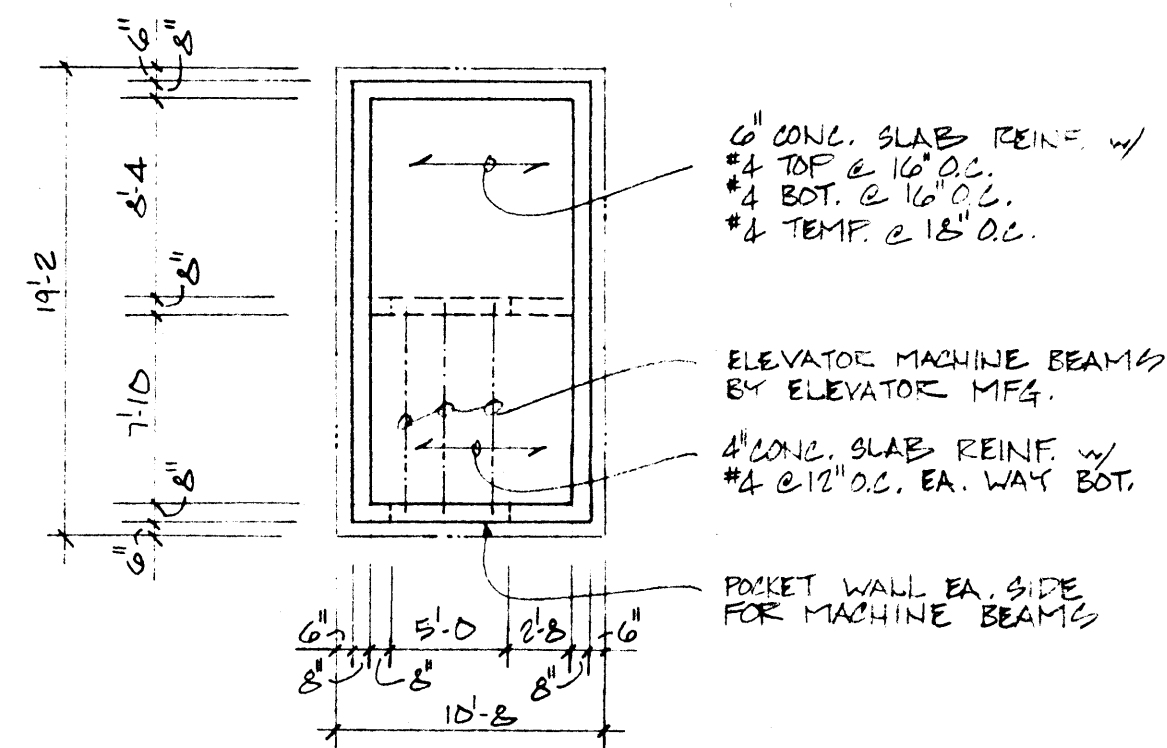 6"
8"
8'-4
8"
19'-2
7'-10
8"
6"
6" CONC. SLAB REINF. w/
#4 TOP @ 16" O.C.
#4 BOT. @ 16" O.C.
#4 TEMP. @ 18" O.C.
ELEVATOR MACHINE BEAMS
BY ELEVATOR MFG.
4" CONC. SLAB REINF. w/
#4 @ 12" O.C. EA. WAY BOT.
POCKET WALL EA. SIDE
FOR MACHINE BEAMS
6" 5'-0 2'-8 6"
8" 8" 8"
10'-8